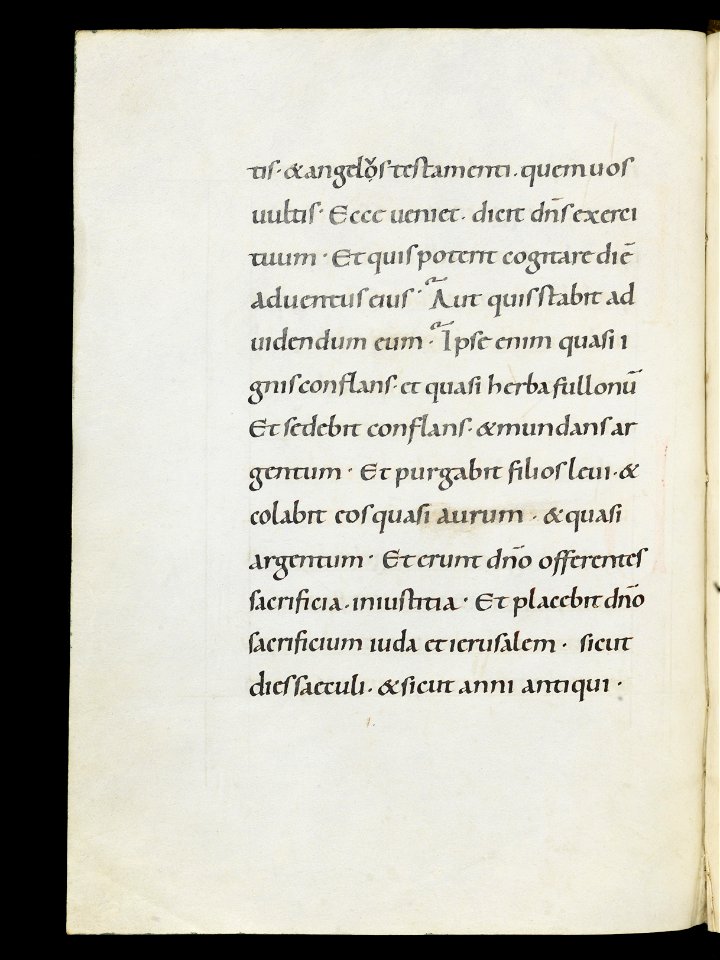 tis· & angelos testamenti· quem uos
uultis· Ecce ueniet· dicit dn̄s exerci
tuum· Et quis poterit cogitare diē
aduentus eius· Aut quis stabit ad
uidendum eum· Ipse enim quasi i
gnis conflans· et quasi herba fullonū
Et sedebit conflans· & mundans ar
gentum· Et purgabit filios leui· &
colabit eos quasi aurum· & quasi
argentum· Et erunt dn̄o offerentes
sacrificia· in iustitia· Et placebit dn̄o
sacrificium iuda et ierusalem· sicut
dies saeculi· & sicut anni antiqui·